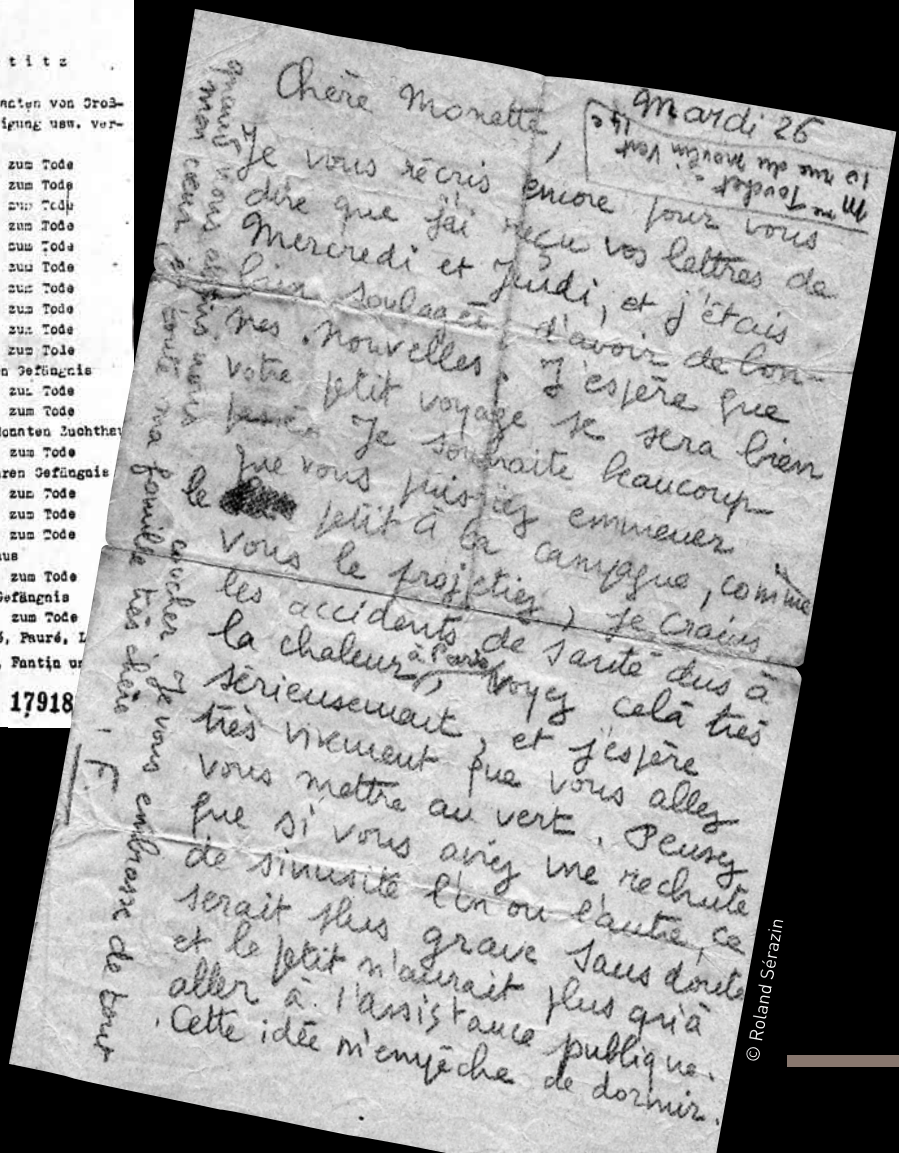 titz
naten von Groß-
igung usw. ver-
zum Tode
zum Tode
zum Tode
zum Tode
zum Tode
zum Tode
zum Tode
zum Tode
zum Tode
zum Tode
n Gefängnis
zum Tode
zum Tode
onaten Zuchthau
zum Tode
ren Gefängnis
zum Tode
zum Tode
zum Tode
aus
zum Tode
Gefängnis
zum Tode
, Fauré, L
, Fantin un
17918
Mardi 26
Mme Touchet
10 rue du moulin vert
14e
Chère Monette,
Je vous récris encore pour vous
dire que j'ai reçu vos lettres de
Mercredi et Jeudi, et j'étais
bien soulagée d'avoir de bon-
nes nouvelles. J'espère que
votre petit voyage se sera bien
passé. Je souhaite beaucoup
que vous puissiez emmener
le petit à la campagne, comme
vous le projetiez, je crains
les accidents de santé dus à
la chaleur, à Paris, voyez celà très
sérieusement, et j'espère
très vivement que vous allez
vous mettre au vert. Pensez
que si vous aviez une rechute
de sinusite l'un ou l'autre, ce
serait plus grave sans doute
et le petit n'aurait plus qu'à
aller à l'assistance publique.
Cette idée m'empêche de dormir.
quand nous allons nous coucher. Je vous embrasse de tout
mon cœur et toute ma famille très chère! F.
© Roland Sérazin